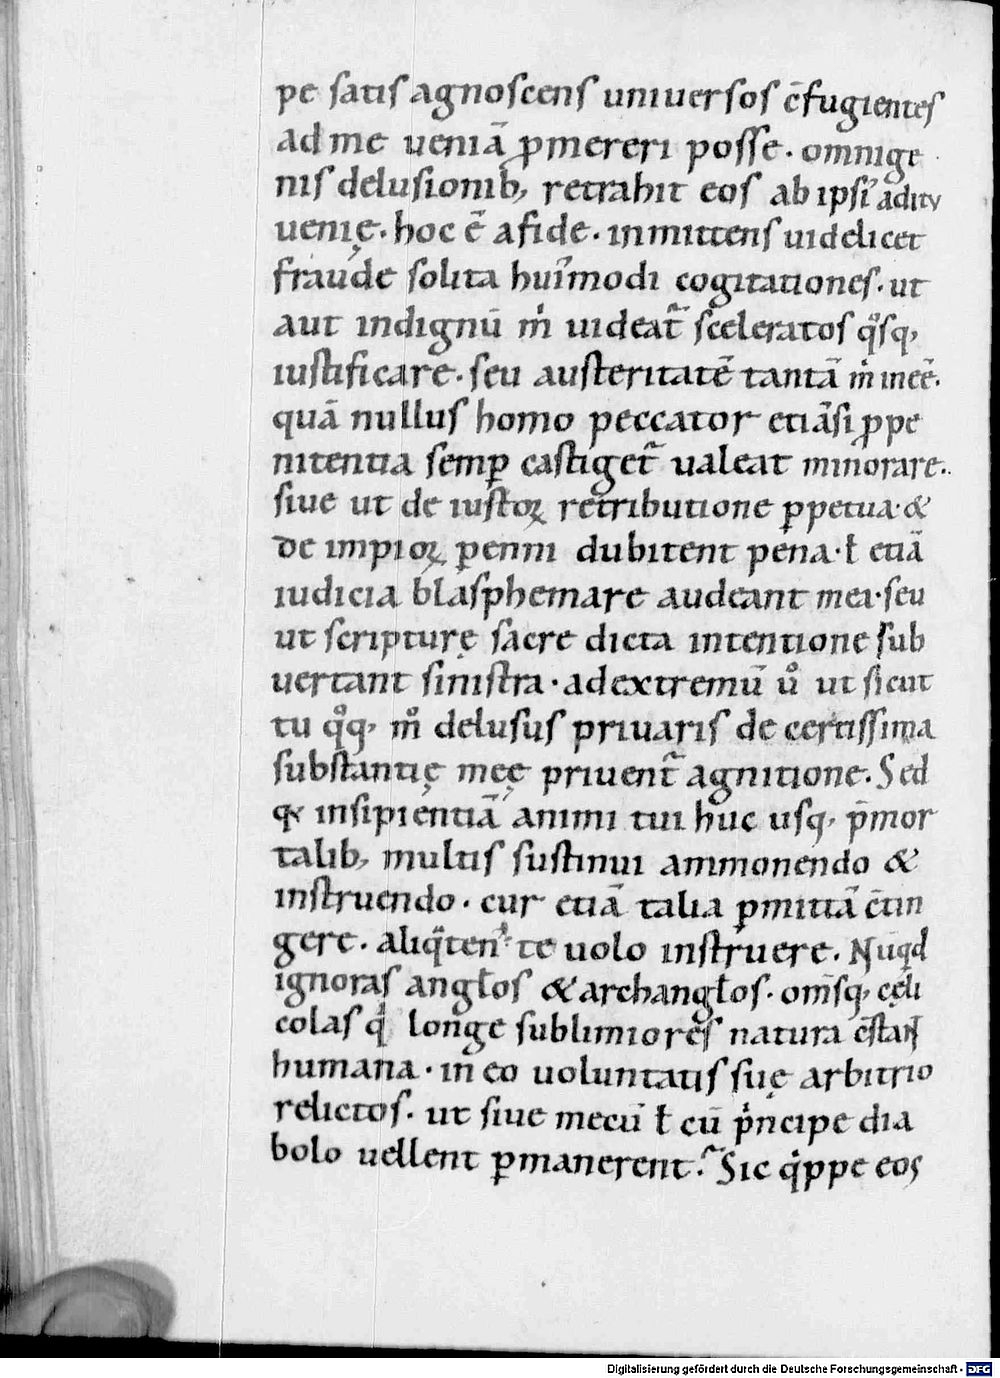 pe satis agnoscens uniuersos c̄fugientes
ad me ueniā ꝓmereri posse. omnige
nis delusionib; retrahit eos ab ipsi᷒ aditu
uenię. hoc ē a fide. inmittens uidelicet
fraude solita hui᷒modi cogitationes. ut
aut indignū m̍ uideat᷑ sceleratos q̊sq;
iustificare. seu austeritatē tantā m̍ ineē.
quā nullus homo peccator etiā si ꝓ pe
nitentia semꝑ castiget᷑ ualeat minorare.
siue ut de iustoꝝ retributione ꝑpetua. &
de impioꝝ ꝑenni dubitent pena. ł etiā
iudicia blasphemare audeant mea. seu
ut scripturę sacre dicta intentione sub
uertant sinistra. ad extremū ů ut sicut
tu q̊q; m̊ delusus priuaris de certissima
substantię meę priuent᷑ agnitione. Sed
qꝛ insipientiā animi tui huc usq; p̄ mor
talib; multis sustinui ammonendo &
instruendo. cur etiā talia ꝑmittā c̄tin
gere. aliqᷓten᷒ te uolo instruere. Nūqd
ignoras angłos & archangłos. om̄sq; cęli
colas q̍ longe sublimiores natura c̄stant
humana. in eo uoluntatis suę arbitrio
relictos. ut siue mecū ł cū p̍ncipe dia
bolo uellent ꝑmanerent? Sic q̍ppe eos
Digitalisierung gefördert durch die Deutsche Forschungsgemeinschaft - DFG